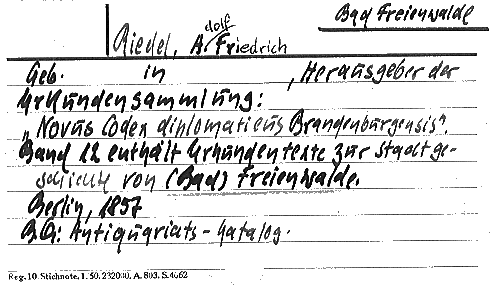 Bad Freienwalde
Riedel, Adolf Friedrich
Geb. in , Herausgeber der
Urkundensammlung:
„Novus Codex diplomaticus Brandenburgensis".
Band 12 enthält Urkundentexte zur Stadtge-
schichte von (Bad) Freienwalde.
Berlin, 1857
B.Q: Antiquariats-Katalog.
Reg. 10. Stichnote. 1. 50. 232000. A. 803. S. 4662